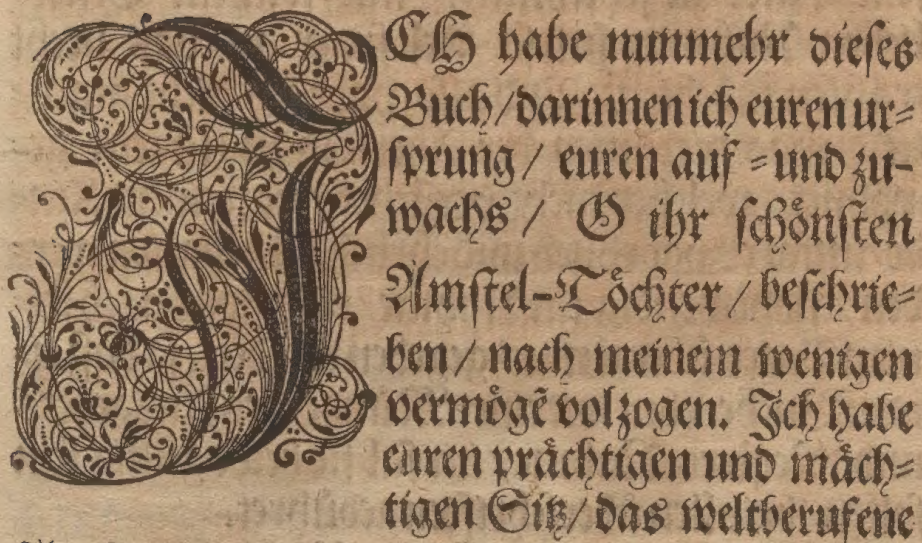 ICH habe nunmehr dieses
Buch / darinnen ich euren ur=
sprung / euren auf = und zu-
wachs / O ihr schönsten
Amstel-Töchter / beschrie=
ben / nach meinem wenigen
vermögẽ volzogen. Ich habe
euren prächtigen und mäch=
tigen Sitz / das weltberufene